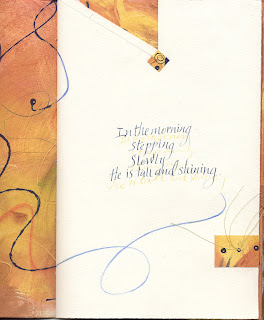 In the morning
Stepping
Slowly
He is tall and shining